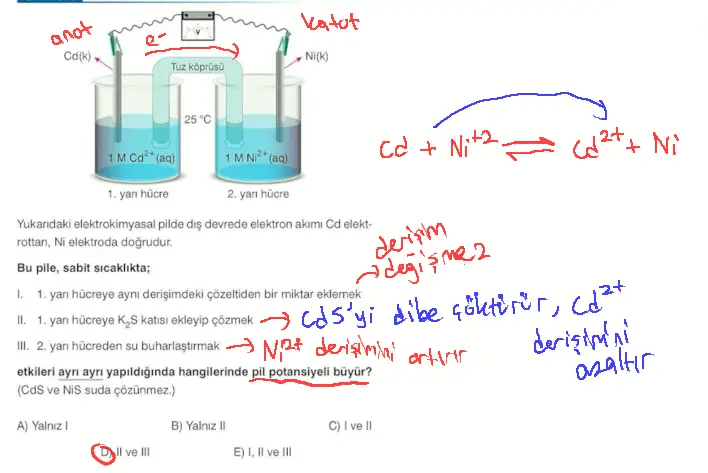 anot
e-
katot
V
Cd(k)
Tuz köprüsü
Ni(k)
25 °C
1 M Cd²⁺(aq)
1 M Ni²⁺(aq)
1. yarı hücre
2. yarı hücre
Cd + Ni⁺² ⇌ Cd²⁺ + Ni
Yukarıdaki elektrokimyasal pilde dış devrede elektron akımı Cd elekt-
rottan, Ni elektroda doğrudur.
Bu pile, sabit sıcaklıkta;
derişim
→ değişmez
I. 1. yarı hücreye aynı derişimdeki çözeltiden bir miktar eklemek
II. 1. yarı hücreye K₂S katısı ekleyip çözmek → CdS'yi dibe çöktürür, Cd²⁺
derişimini
azaltır
III. 2. yarı hücreden su buharlaştırmak → Ni²⁺ derişimini artırır
etkileri ayrı ayrı yapıldığında hangilerinde pil potansiyeli büyür?
(CdS ve NiS suda çözünmez.)
A) Yalnız I B) Yalnız II C) I ve II
D) II ve III E) I, II ve III